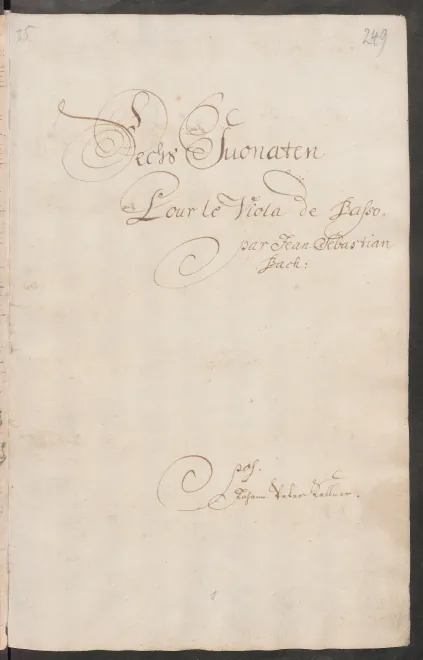 35
249
Sechs Suonaten
Pour le Viola de Basso.
par Jean Sebastian
Bach:
pos.
Johann Peter Kellner.